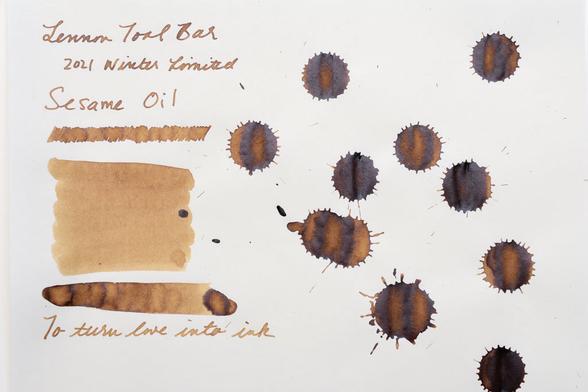 Lennon Tool Bar
2021 Winter Limited
Sesame Oil
To turn love into ink